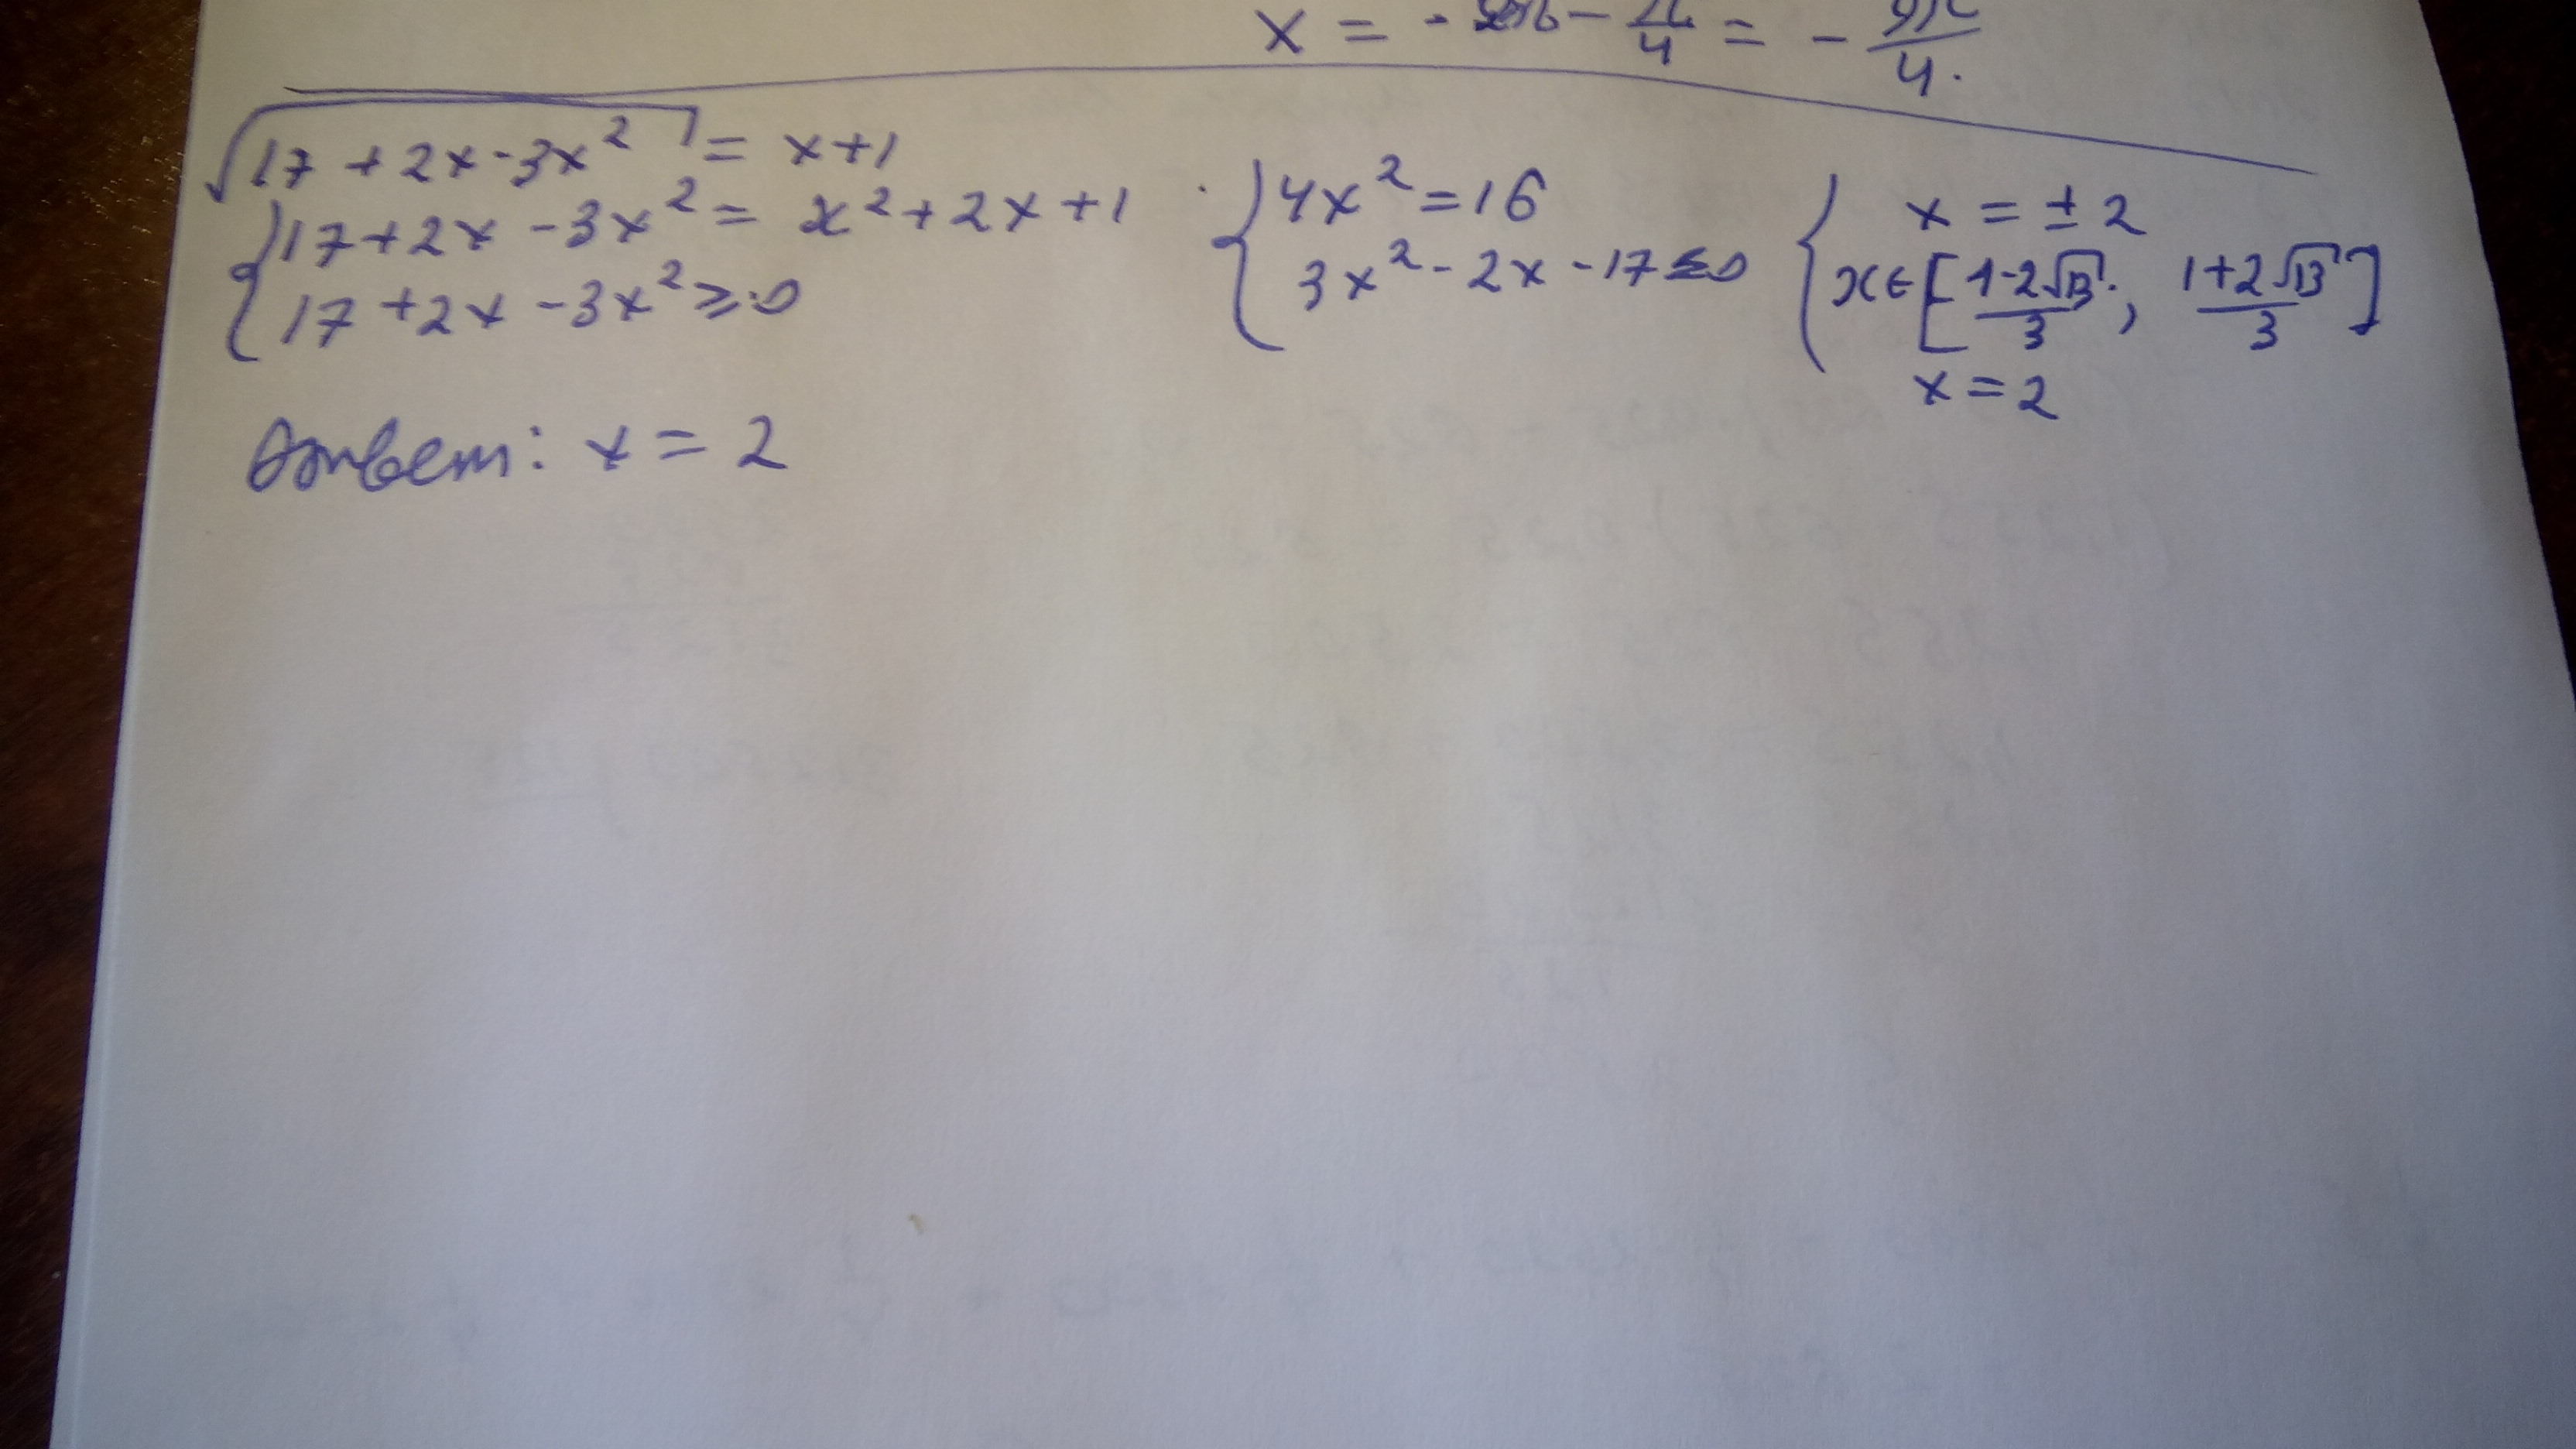 x = - - π/4 = - 9π/4.
√(17 + 2x - 3x²) = x+1
{ 17 + 2x - 3x² = x² + 2x + 1
{ 17 + 2x - 3x² ≥ 0
{ 4x² = 16
{ 3x² - 2x - 17 ≤ 0
{ x = ± 2
{ x ∈ [ (1-2√13)/3 ; (1+2√13)/3 ]
x = 2
Ответ: x = 2